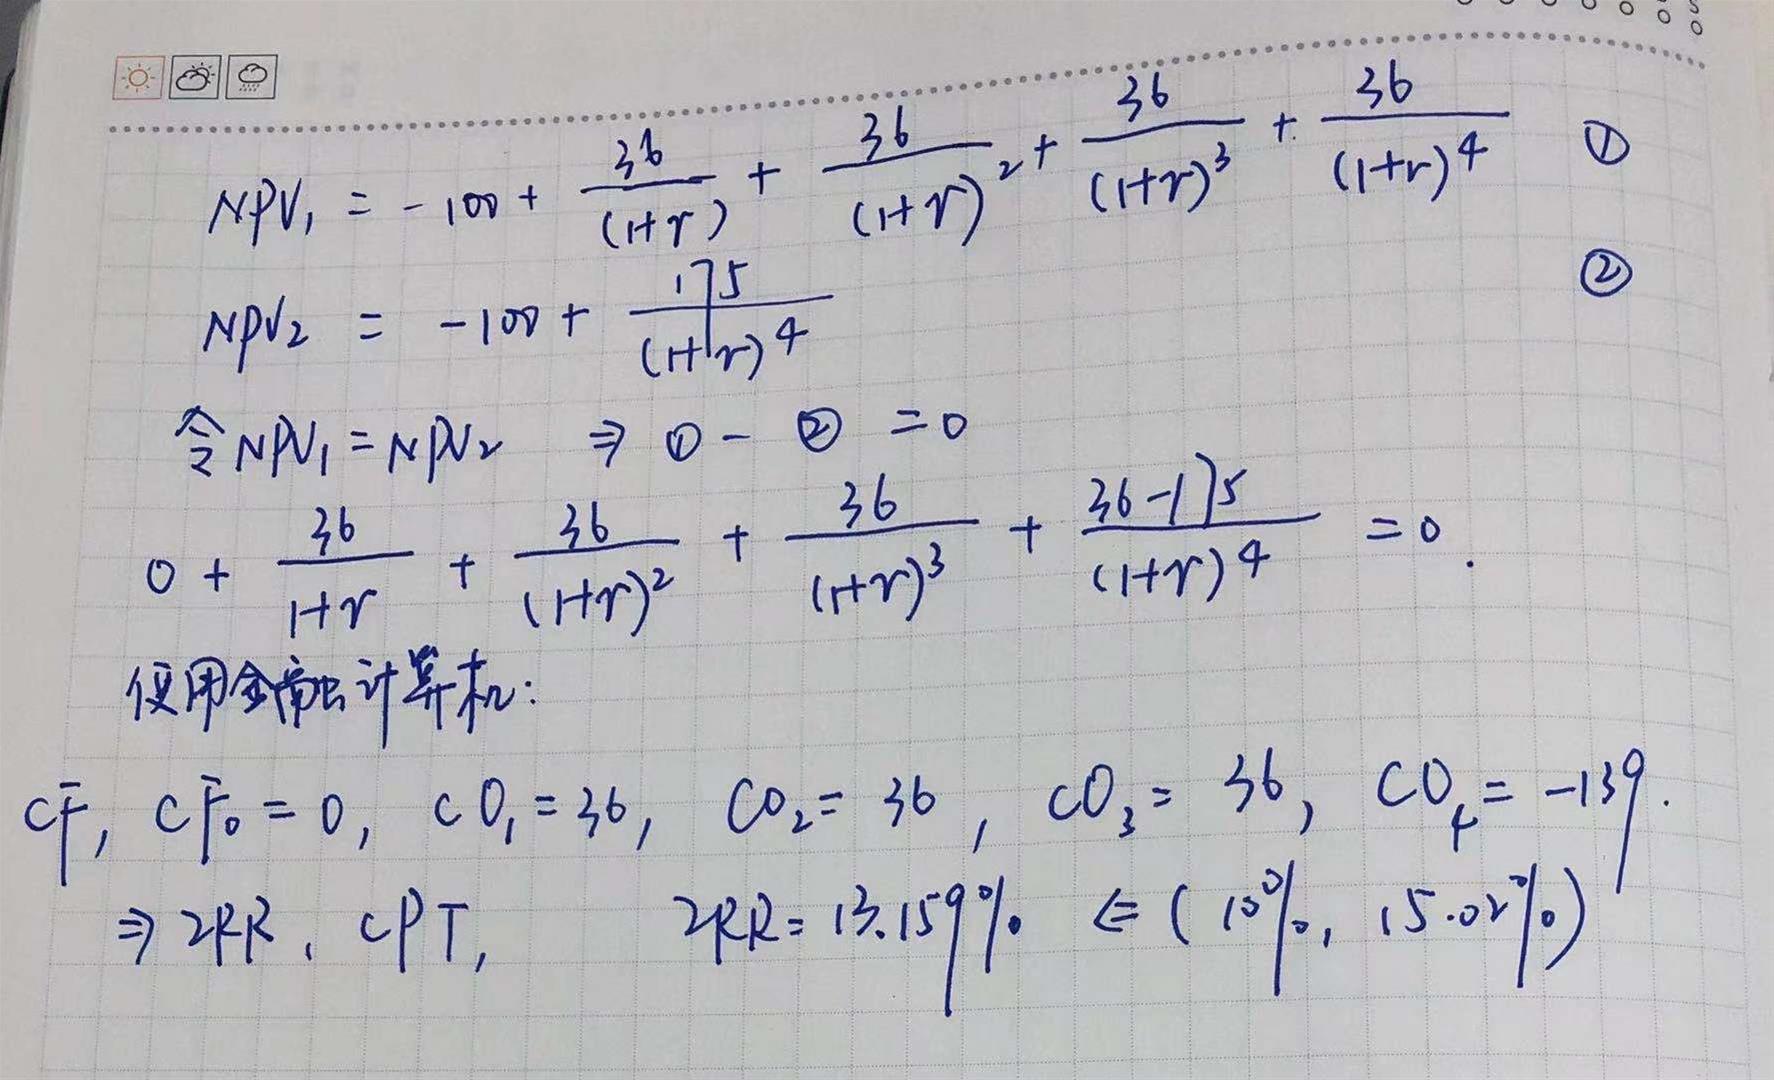 NPV₁ = -100 + 36/(1+r) + 36/(1+r)² + 36/(1+r)³ + 36/(1+r)⁴ ①
NPV₂ = -100 + 175/(1+r)⁴ ②
令NPV₁ = NPV₂ ⇒ ① - ② = 0
0 + 36/1+r + 36/(1+r)² + 36/(1+r)³ + 36-175/(1+r)⁴ = 0.
使用金融计算机:
CF, CF₀ = 0, CO₁ = 36, CO₂ = 36, CO₃ = 36, CO₄ = -139.
⇒ IRR, CPT, IRR = 13.159% ∈ (10%, 15.02%)